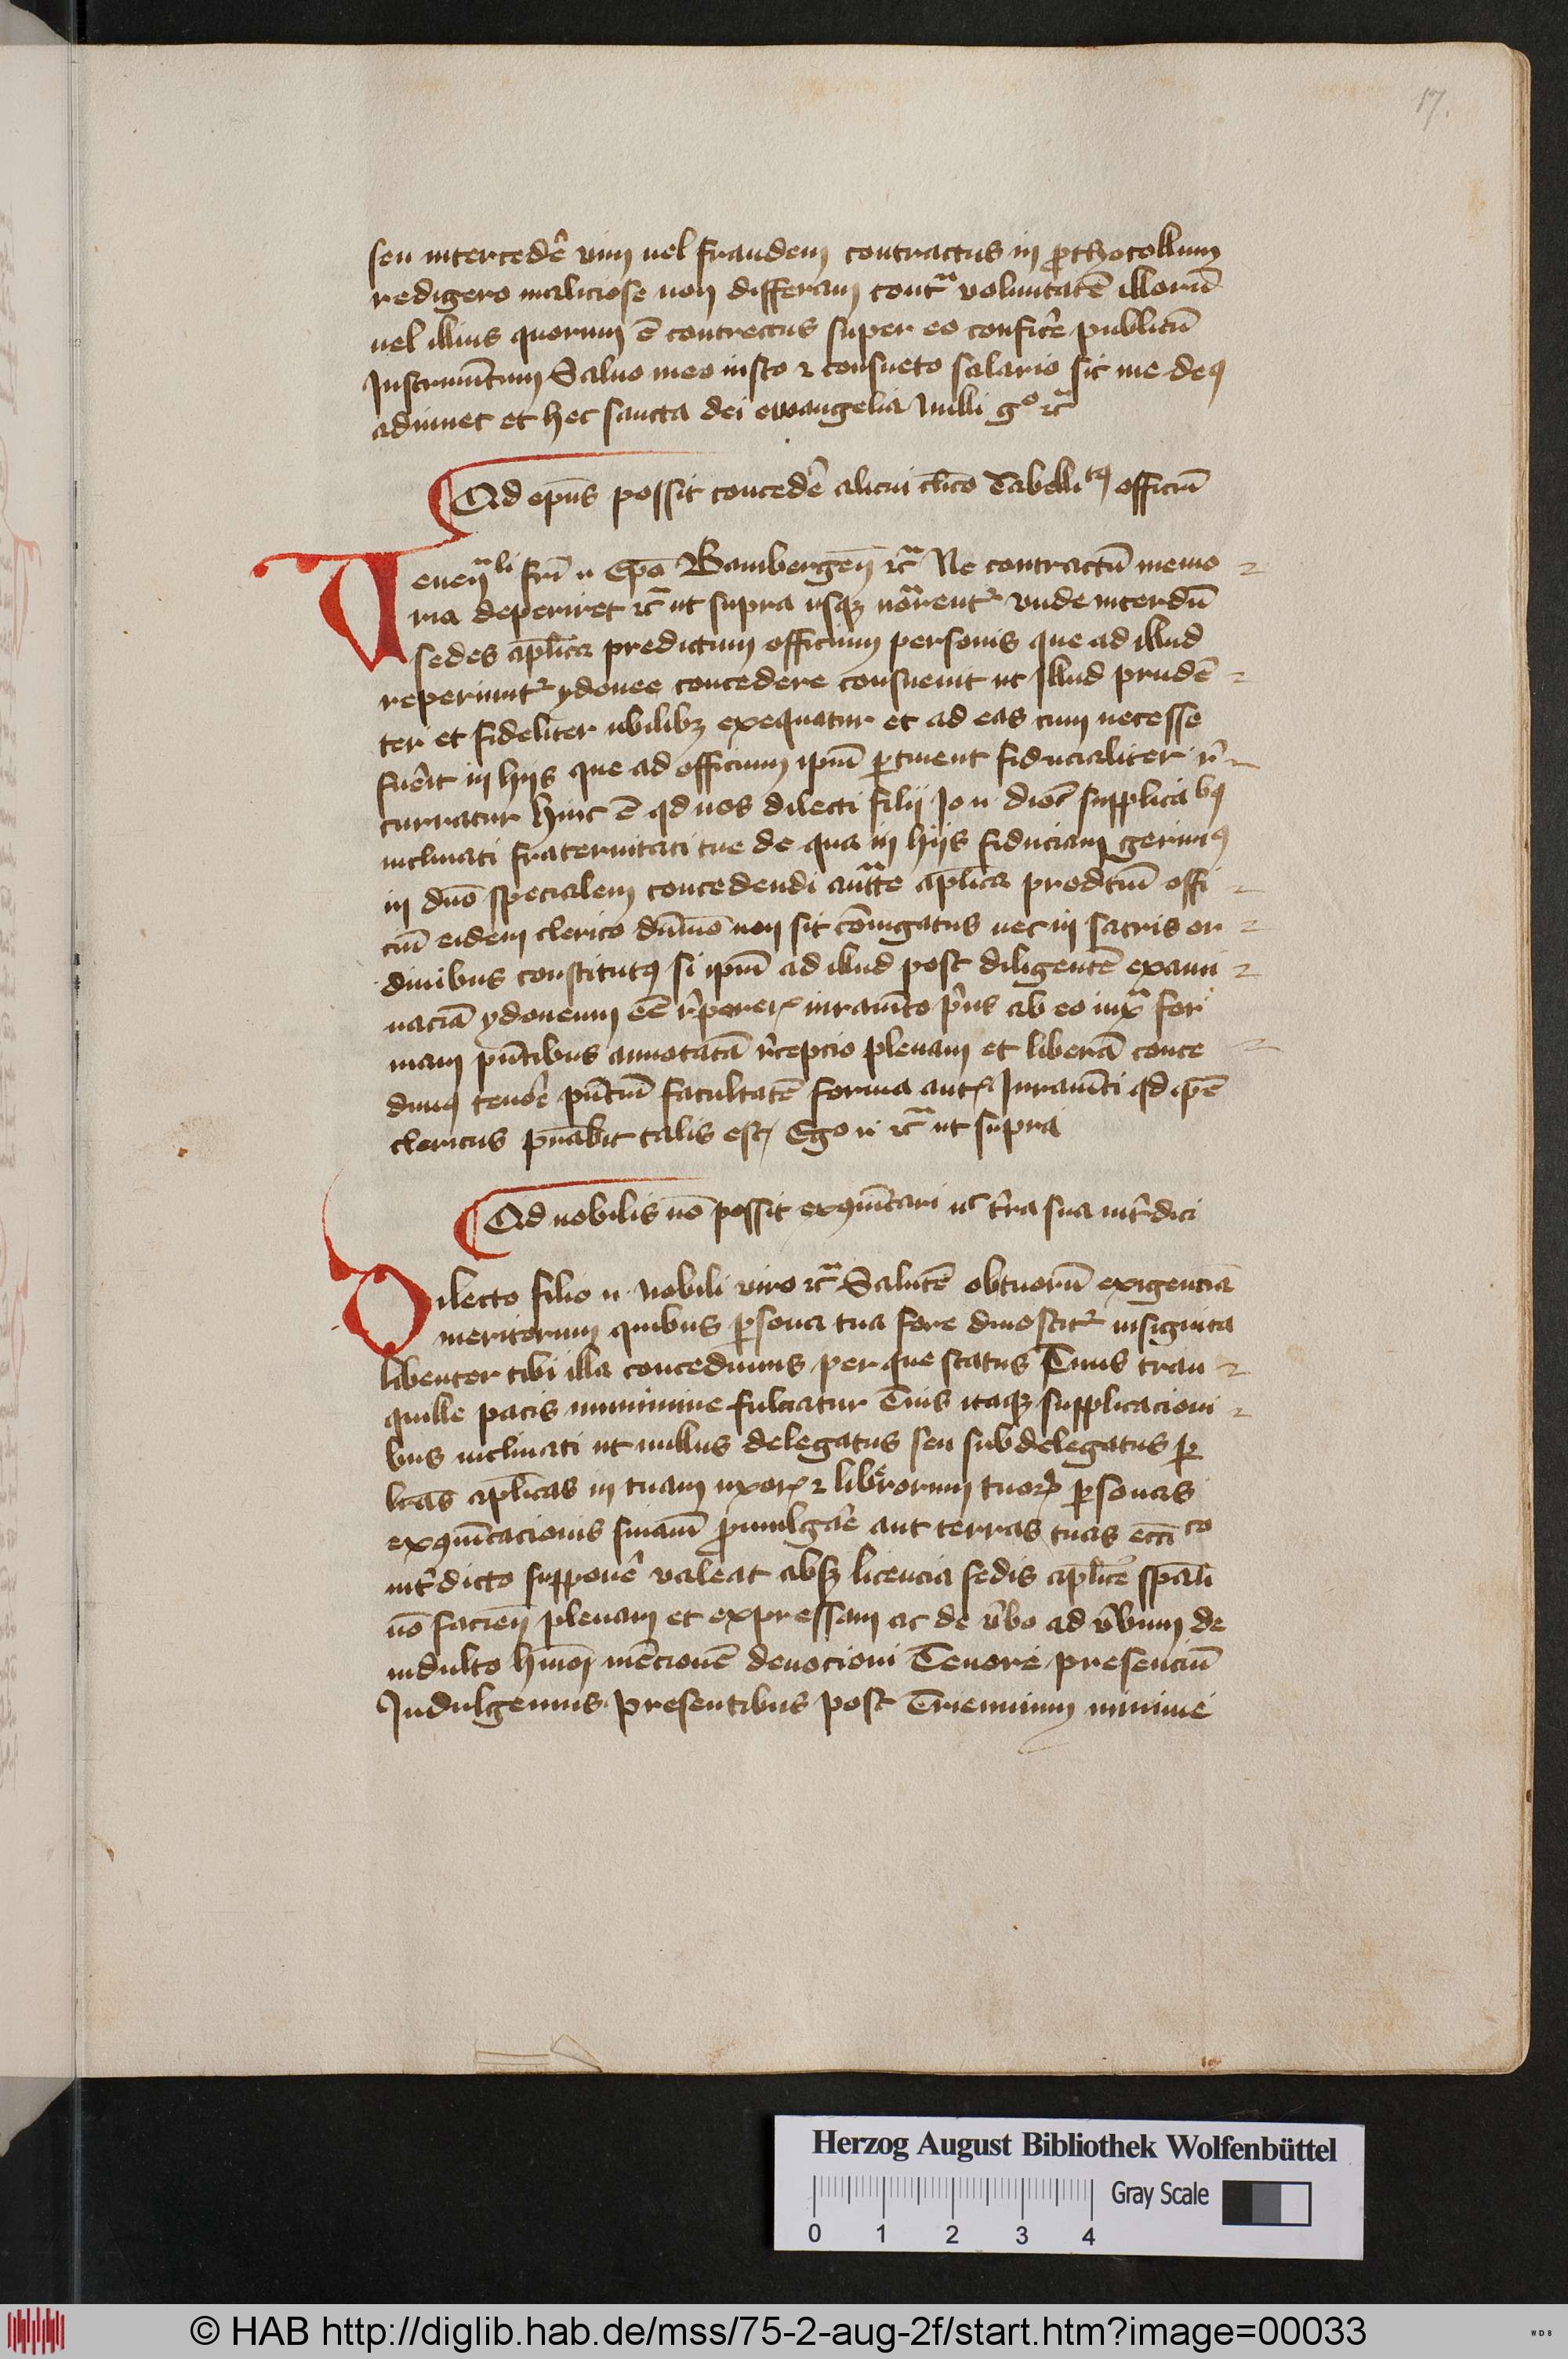 17.
seu intercedẽ vim uel fraudem contractus in ꝓthocollum
redigero maliciose non differam contͣ voluntatē illorū
uel illius quorum ē contrectus super eo conficẽ publicū
Instrumētum Saluo meo iusto ⁊ consueto salario sic me deꝰ
adiuuet et hec sancta dei ewangelia Nulli gͦ ⁊cͣ
Qd ep̄us possit concedẽ alicui cl̄ico Tabelliͭꝰ officiū
Uenenͣˡⁱ frī n Ep̄o Bambergen̄ ⁊cͣ Ne contractū memo
ria deperiret ⁊cͣ ut supra usqꝫ noͣrent᷑ vnde interdū
sedes ap̄lica predictum officium personis que ad illud
reperiunt᷑ ydonee concedere consueuit ut Illud prudē
ter et fideliter ubilibꝫ exequatur et ad eas cum necesse
fuẽit in hijs que ad officium ipm̄ ꝑtinent fiducialiter r̄
curratur hinc ē qd nos dilecti filij Jo n dioc̄ supplicaᵇꝰ
inclinati fraternitati tue de qua in hijs fiduciam gerimꝰ
in dn̄o specialem concedendi auͣtte ap̄lica predcm̄ offi
ciū eidem clerico dūmō non sit cōiugatus nec in sacris or
dinibus constitutꝰ si ipm̄ ad illud post diligentē exami
naciā ydoneum eē r̄pereris iuramēto p̄us ab eo iuxͣ for
mam pn̄tibus annotatā r̄cepcio plenam et liberā conce
dimꝰ tenoẽ pn̄tiū facultatē forma aut̄ Iuramēti qd ip̄e
clericus pr̄abit talis est Ego n ⁊cͣ ut supra
Qd nobilis nō possit exꝯmūicari nͨ t̄ra sua int̄dici
Dilecto filio n nobili viro ⁊cͣ Salutē obtuorū exigenciā
meritorum quibus ꝑsona tua fore dinoscit᷑ insignita
libenter tibi illa concedimus per que status Tuus tran
quille pacis munimine fulciatur Tuis itaqꝫ supplicacioni
bus inclinati ut nullus delegatus seu subdelegatus ꝑ
lrās ap̄licas in tuam uxorꝭ ⁊ liberorum tuoꝝ ꝑsonas
exꝯmūicacionis sniam̄ ꝓmulgaẽ aut terras tuas ecciͨᵒ
int̄dicto supponẽ valeat absqꝫ licencia sedis ap̄lice spāli
nō facien̄ plenam et expressam ac de v̄bo ad v̄bum de
indulto hm̄oi mēcionē deuocioni Tenore presenciū
Indulgemus presentibus post Triennium minime
Herzog August Bibliothek Wolfenbüttel
Gray Scale
0 1 2 3 4
© HAB http://diglib.hab.de/mss/75-2-aug-2f/start.htm?image=00033
WDB